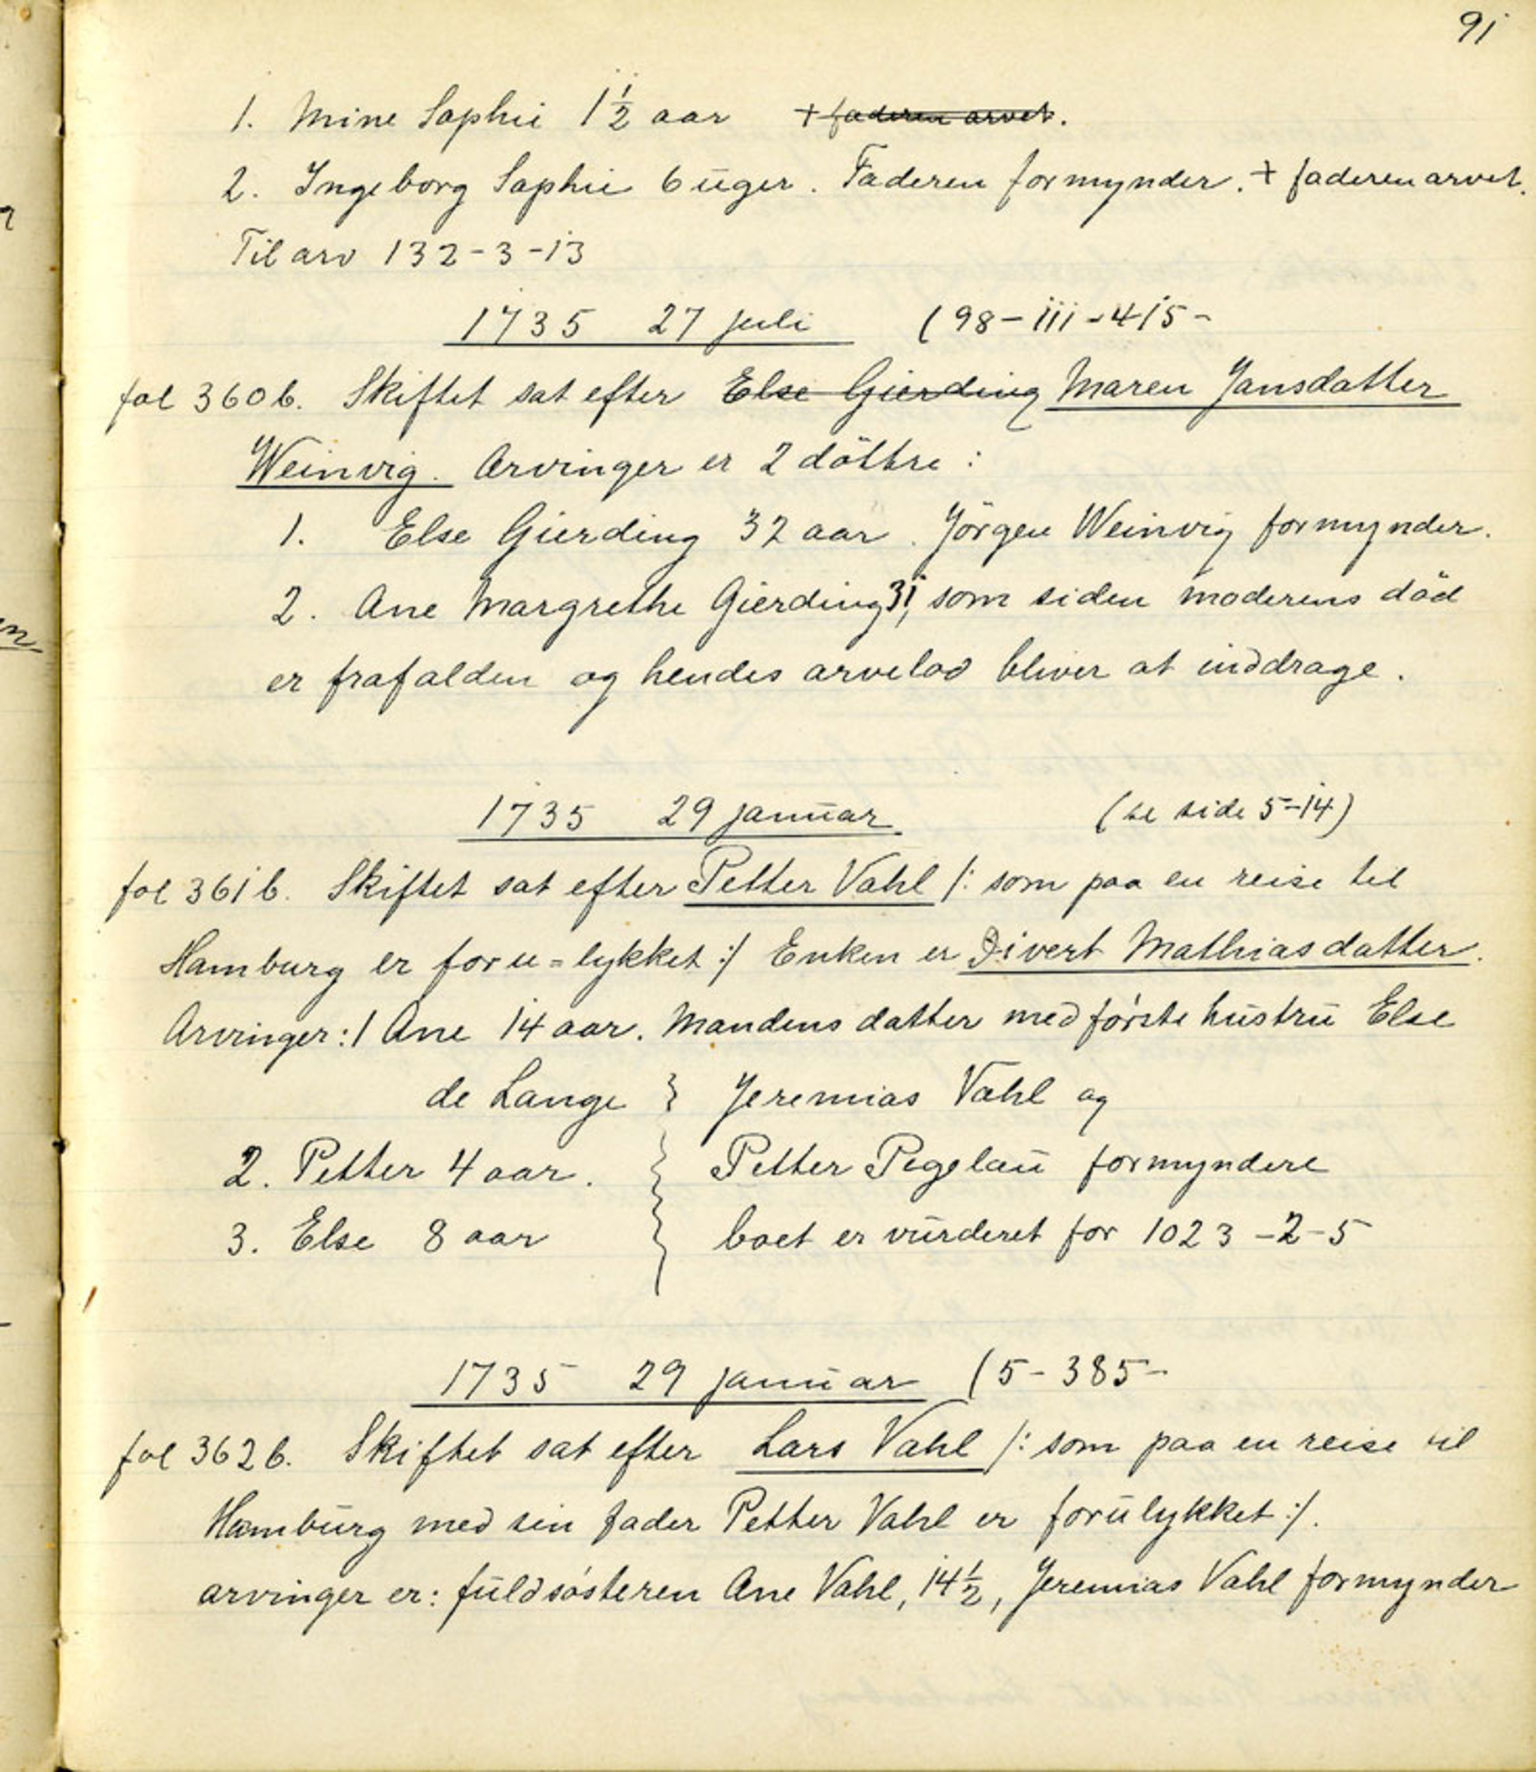 91
1. Mine Sophie 1½ aar + faderen arvet.
2. Ingeborg Sophie 6 uger. Faderen formynder. + faderen arvet.
Til arv 132-3-13
1735 27 juli (98-111-415-
fol 360b. Skiftet sat efter Else Gierding Maren Jansdatter
Weinvig. Arvinger er 2 döttre:
1. Else Gierding 32 aar. Jörgen Weinvig formynder.
2. Ane Margrethe Gierding 31, som siden moderens död
er frafalden og hendes arvelod bliver at inddrage.
1735 29 januar (se side 5-14)
fol 361b. Skiftet sat efter Petter Vahl /: som paa en reise til
Hamburg er foru=lykket :/ Enken er Divert Mathiasdatter.
Arvinger: 1 Ane 14 aar. Mandens datter med förste hustru Else
de Lange } Jeremias Vahl og
2. Petter 4 aar. } Petter Pegelau formyndere
3. Else 8 aar } boet er vurderet for 1023-2-5
1735 29 januar (5-385-
fol 362b. Skiftet sat efter Lars Vahl /: som paa en reise til
Hamburg med sin fader Petter Vahl er forulykket :/.
arvinger er: fuldsösteren Ane Vahl, 14½, Jeremias Vahl formynder